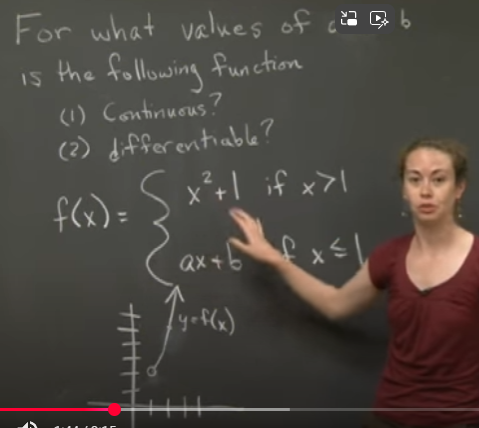 For what values of b
is the following function
(1) Continuous?
(2) differentiable?
f(x) = { x²+1 if x>1
ax+b if x≤1
y=f(x)